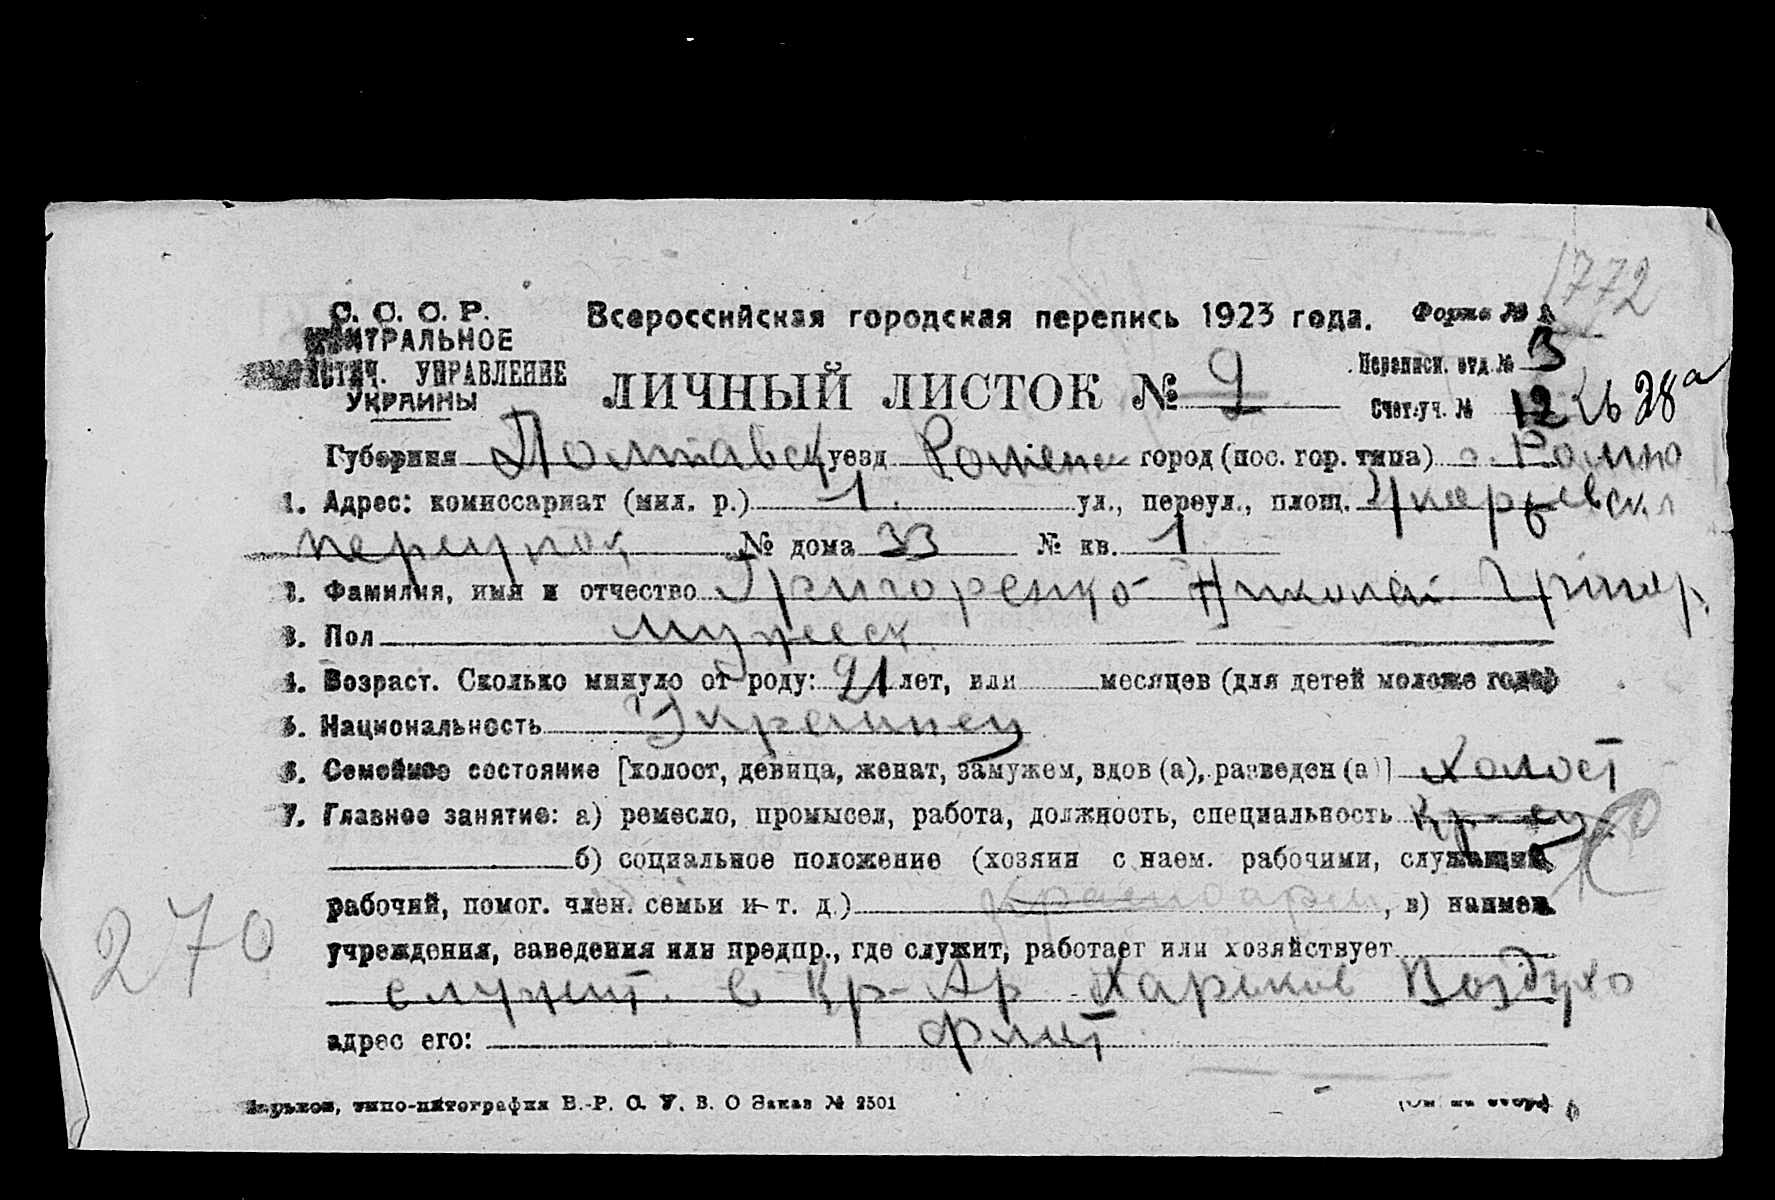 1772
С. С. С. Р. Всероссийская городская перепись 1923 года. Форма № А
ЦЕНТРАЛЬНОЕ
СТАТИСТИЧ. УПРАВЛЕНИЕ
УКРАИНЫ
ЛИЧНЫЙ ЛИСТОК № 2
Переписн. отд. № 3
Счет. уч. № 12 28а
Губерния Полтавск уезд Роменск город (пос. гор. типа) г. Ромны
1. Адрес: комиссариат (мил. р.) 1 ул., переул., площ.
переулок № дома 33 № кв. 1
2. Фамилия, имя и отчество Григоренко Николай Григор.
3. Пол мужеск.
4. Возраст. Сколько минуло от роду: 21 лет, или месяцев (для детей моложе года)
5. Национальность Украинец
6. Семейное состояние [холост, девица, женат, замужем, вдов (а), разведен (а)] холост
7. Главное занятие: а) ремесло, промысел, работа, должность, специальность
б) социальное положение (хозяин с наем. рабочими, служащий,
рабочий, помог. член. семьи и т. д.) красноарм, в) наимен.
270
учреждения, заведения или предпр., где служит, работает или хозяйствует
служит в Кр-Ар Харьков Воздухо
адрес его: флот
Харьков, типо-литография В.-Р. О. У. В. О Заказ № 2501